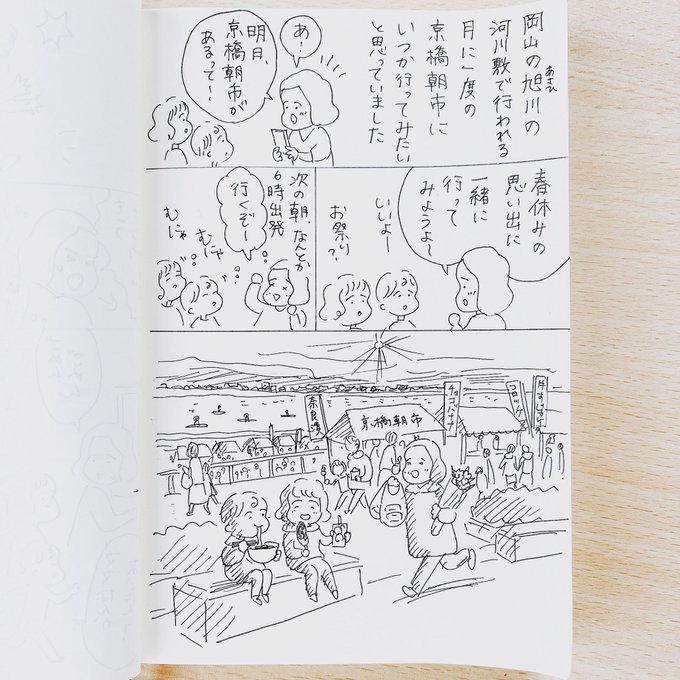 岡山の旭川の
あさひ
河川敷で行われる
月に一度の
京橋朝市に
いつか行ってみたい
と思っていました
あ!
明日、
京橋朝市が
あるって!
春休みの
思い出に
一緒に
行って
みようよ~
いいよー
お祭り?
次の朝、なんとか
6時出発
行くぞー
むにゃ
むにゃ
奈良漬
京橋朝市
チョコバナナ
コロッケ